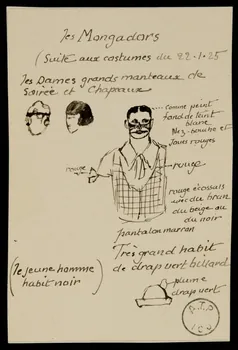 Les Mongadors
(Suite aux costumes du 22.1.25
Les Dames grands manteaux de
Soirée et Chapeaux
comme peint
fond de teint
blanc
Nez-bouche et
joues rouges
rouge
rouge
rouge écossais
avec du brun
du beige ou
du noir
pantalon marron
Très grand habit
de drap vert billard
(le jeune homme
habit noir)
plume
drap vert